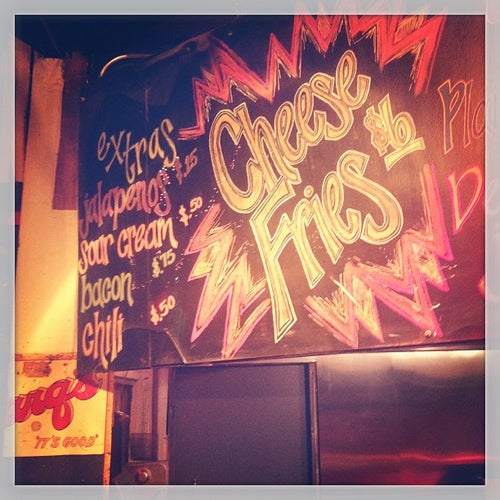 extras
jalapenos
sour cream
bacon
chili
$.50
$.75
$.50
Cheese
Fries
$6
IT'S GOOD